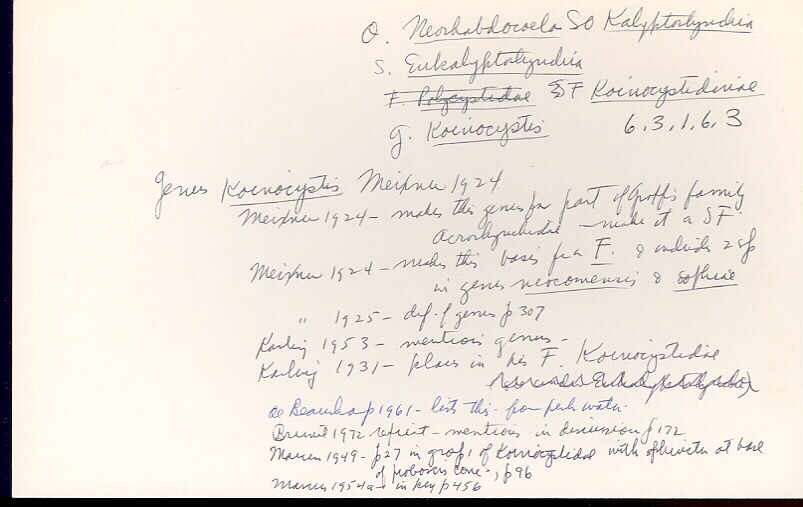 O. Neorhabdocoela SO Kalyptorhynchia
S. Eukalyptorhynchia
F. Polycystidae F Koinocystidinae
G. Koinocystis 6.3.1.6.3
Genus Koinocystis Meixner 1924
Meixner 1924 - makes this genus for part of Graff's family
Acrorhynchidae - make it a SF
Meixner 1924 - makes this basis for a F. & includes 2 sp
in genus neocomensis & sophiae
" 1925 - def. of genus p 307
Karling 1953 - mentions genus -
Karling 1931 - places in his F. Koinocystidae
Eukalyptorhynchia)
de Beauchamp 1961 - lists this - from fresh water.
Brunet 1972 reprint - mentions in discussion p 172
Marcus 1949 - p27 in group 1 of Koinocystidae with sphincter at base
of proboscis cone -, p96
Marcus 1954a - in key p 456